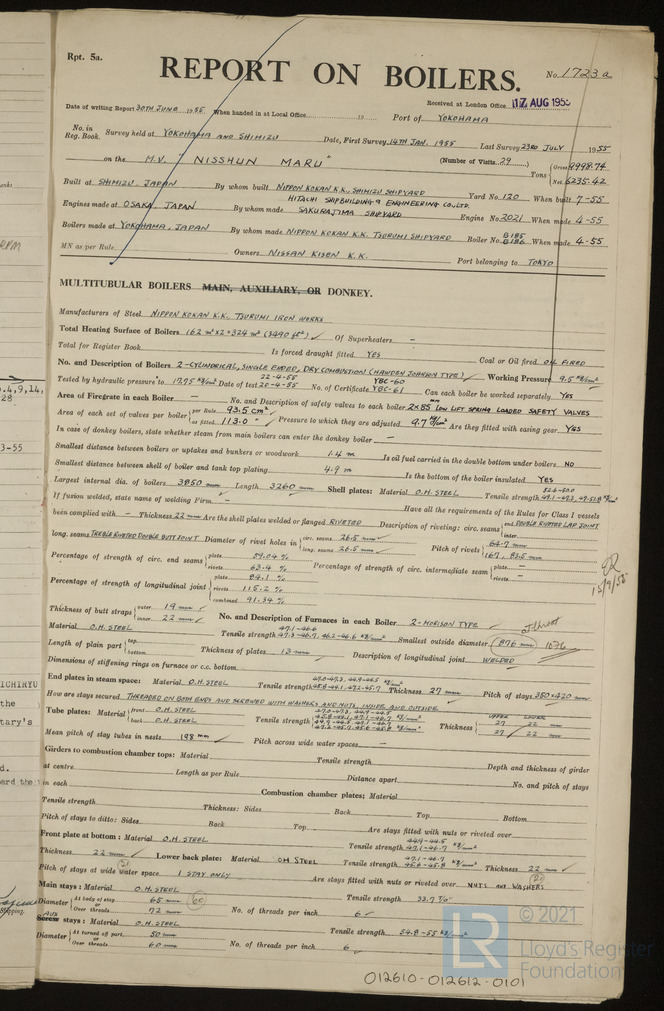 Rpt. 5a.
REPORT ON BOILERS.
No. 1723a
Received at London Office 17 AUG 1955
Date of writing Report 30TH JUNE 1955 When handed in at Local Office 19 Port of YOKOHAMA
No. in Reg. Book. Survey held at YOKOHAMA AND SHIMIZU Date, First Survey 14TH JAN. 1955 Last Survey 23RD JULY 1955
on the M.V. "NISSHUN MARU" (Number of Visits 29) Tons { Gross 9998.74 Net 6235.42
Built at SHIMIZU, JAPAN By whom built NIPPON KOKAN K.K. SHIMIZU SHIPYARD Yard No. 120 When built 7-55
Engines made at OSAKA, JAPAN By whom made HITACHI SHIPBUILDING & ENGINEERING CO., LTD. SAKURAJIMA SHIPYARD Engine No. 2021 When made 4-55
Boilers made at YOKOHAMA, JAPAN By whom made NIPPON KOKAN K.K. TSURUMI SHIPYARD Boiler No. B185 B186 When made 4-55
MN as per Rule Owners NISSAN KISEN K.K. Port belonging to TOKYO
MULTITUBULAR BOILERS MAIN, AUXILIARY, OR DONKEY.
Manufacturers of Steel NIPPON KOKAN K.K. TSURUMI IRON WORKS
Total Heating Surface of Boilers 162 m² x 2 = 324 m² (3490 ft²) ✓ Of Superheaters -
Total for Register Book Is forced draught fitted YES Coal or Oil fired OIL FIRED
No. and Description of Boilers 2-CYLINDRICAL, SINGLE ENDED, DRY COMBUSTION (HOWDEN JOHNSON TYPE) ✓ Working Pressure 9.5 kg/cm²
Tested by hydraulic pressure to 17.75 kg/cm² Date of test 22-4-55 20-4-55 No. of Certificate YBC-60 YBC-61 Can each boiler be worked separately YES
Area of Firegrate in each Boiler - No. and Description of safety valves to each boiler 2x85 mm LOW LIFT SPRING LOADED SAFETY VALVES
Area of each set of valves per boiler { per Rule 93.5 cm² as fitted 113.0 " ✓ Pressure to which they are adjusted 9.7 kg/cm² Are they fitted with easing gear YES
In case of donkey boilers, state whether steam from main boilers can enter the donkey boiler -
Smallest distance between boilers or uptakes and bunkers or woodwork 1.4 m Is oil fuel carried in the double bottom under boilers NO
Smallest distance between shell of boiler and tank top plating 4.9 m Is the bottom of the boiler insulated YES
Largest internal dia. of boilers 3850 mm Length 3260 mm Shell plates: Material O.H. STEEL Tensile strength
If fusion welded, state name of welding Firm - Have all the requirements of the Rules for Class I vessels
been complied with - Thickness 22 mm Are the shell plates welded or flanged RIVETED Description of riveting: circ. seams { end DOUBLE RIVETED LAP JOINT inter. -
long. seams TREBLE RIVETED DOUBLE BUTT JOINT Diameter of rivet holes in { circ. seams 26.5 mm long. seams 26.5 mm Pitch of rivets { 64.7 mm 167, 83.5 mm
Percentage of strength of circ. end seams { plate 59.04 % rivets 63.4 % Percentage of strength of circ. intermediate seam { plate - rivets -
Percentage of strength of longitudinal joint { plate 84.1 % rivets 115.2 % combined 91.34 %
15/9/55
Thickness of butt straps { outer 19 mm ✓ inner 22 mm ✓ No. and Description of Furnaces in each Boiler 2-MORISON TYPE ✓
Material O.H. STEEL Tensile strength 47.1-46.6 47.3-46.7, 46.2-46.6 kg/mm² Smallest outside diameter 876 mm 1076
Length of plain part { top bottom Thickness of plates 13 mm ✓ Description of longitudinal joint WELDED
Dimensions of stiffening rings on furnace or c.c. bottom
End plates in steam space: Material O.H. STEEL Tensile strength Thickness 27 mm Pitch of stays 380x420 mm
How are stays secured THREADED ON BOTH ENDS AND SCREWED WITH WASHERS AND NUTS, INSIDE AND OUTSIDE
Tube plates: Material { front O.H. STEEL back O.H. STEEL Tensile strength Thickness { UPPER LOWER 27 22 mm 27 / 22 mm
Mean pitch of stay tubes in nests 198 mm Pitch across wide water spaces -
Girders to combustion chamber tops: Material Tensile strength Depth and thickness of girder
at centre Length as per Rule Distance apart No. and pitch of stays
in each Combustion chamber plates: Material
Tensile strength Thickness: Sides Back Top Bottom
Pitch of stays to ditto: Sides Back Top Are stays fitted with nuts or riveted over
Front plate at bottom: Material O.H. STEEL Tensile strength 44.9-44.5 47.1-46.7 kg/mm²
Thickness 22 mm ✓ Lower back plate: Material OH STEEL Tensile strength 47.1-46.7 45.6-45.8 kg/mm² Thickness 22 mm ✓
Pitch of stays at wide water space 1 STAY ONLY Are stays fitted with nuts or riveted over NUTS AND WASHERS
Main stays: Material O.H. STEEL Tensile strength 33.7
Diameter { At body of stay 65 mm or Over threads 72 mm No. of threads per inch 6 ✓
AUX Screw stays: Material O.H. STEEL Tensile strength 54.8-55 kg/mm²
Diameter { At turned off part 50 mm or Over threads 60 mm No. of threads per inch 6
© 2021
LR Lloyd's Register Foundation
012610-012612-0101